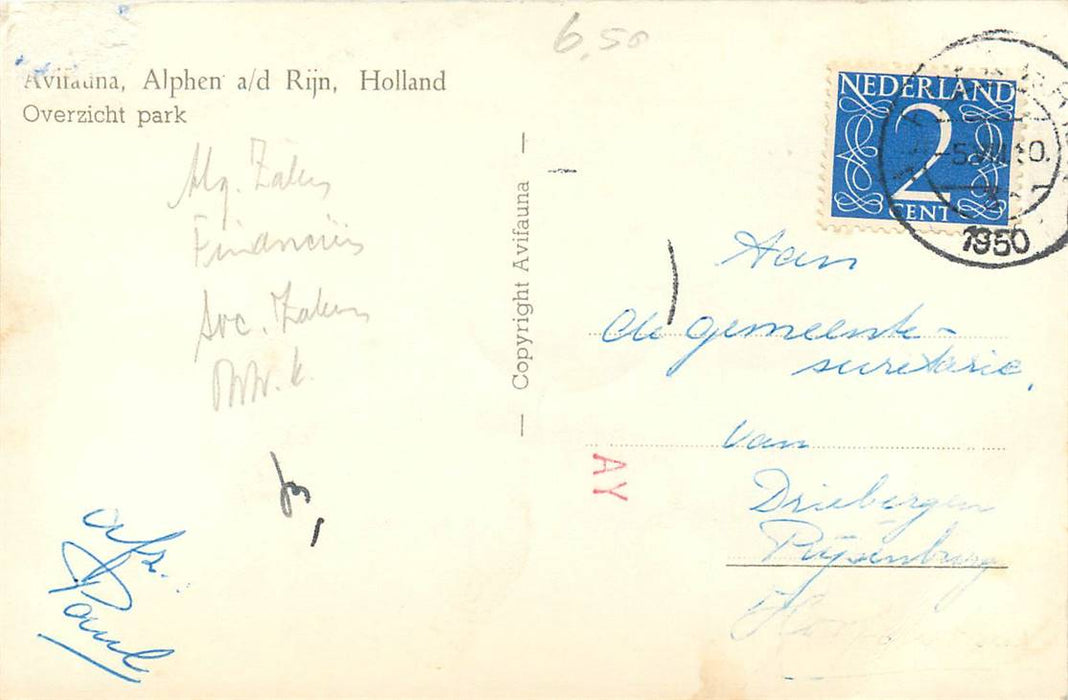 6,50
Avifauna, Alphen a/d Rijn, Holland
Overzicht park
Alg. Zaken
Financiën
Soc. Zaken
afz.
Paul
— Copyright Avifauna —
NEDERLAND
2
CENT
1950
Aan
de gemeente-
secretarie,
van
Driebergen
Rijsenburg
AY